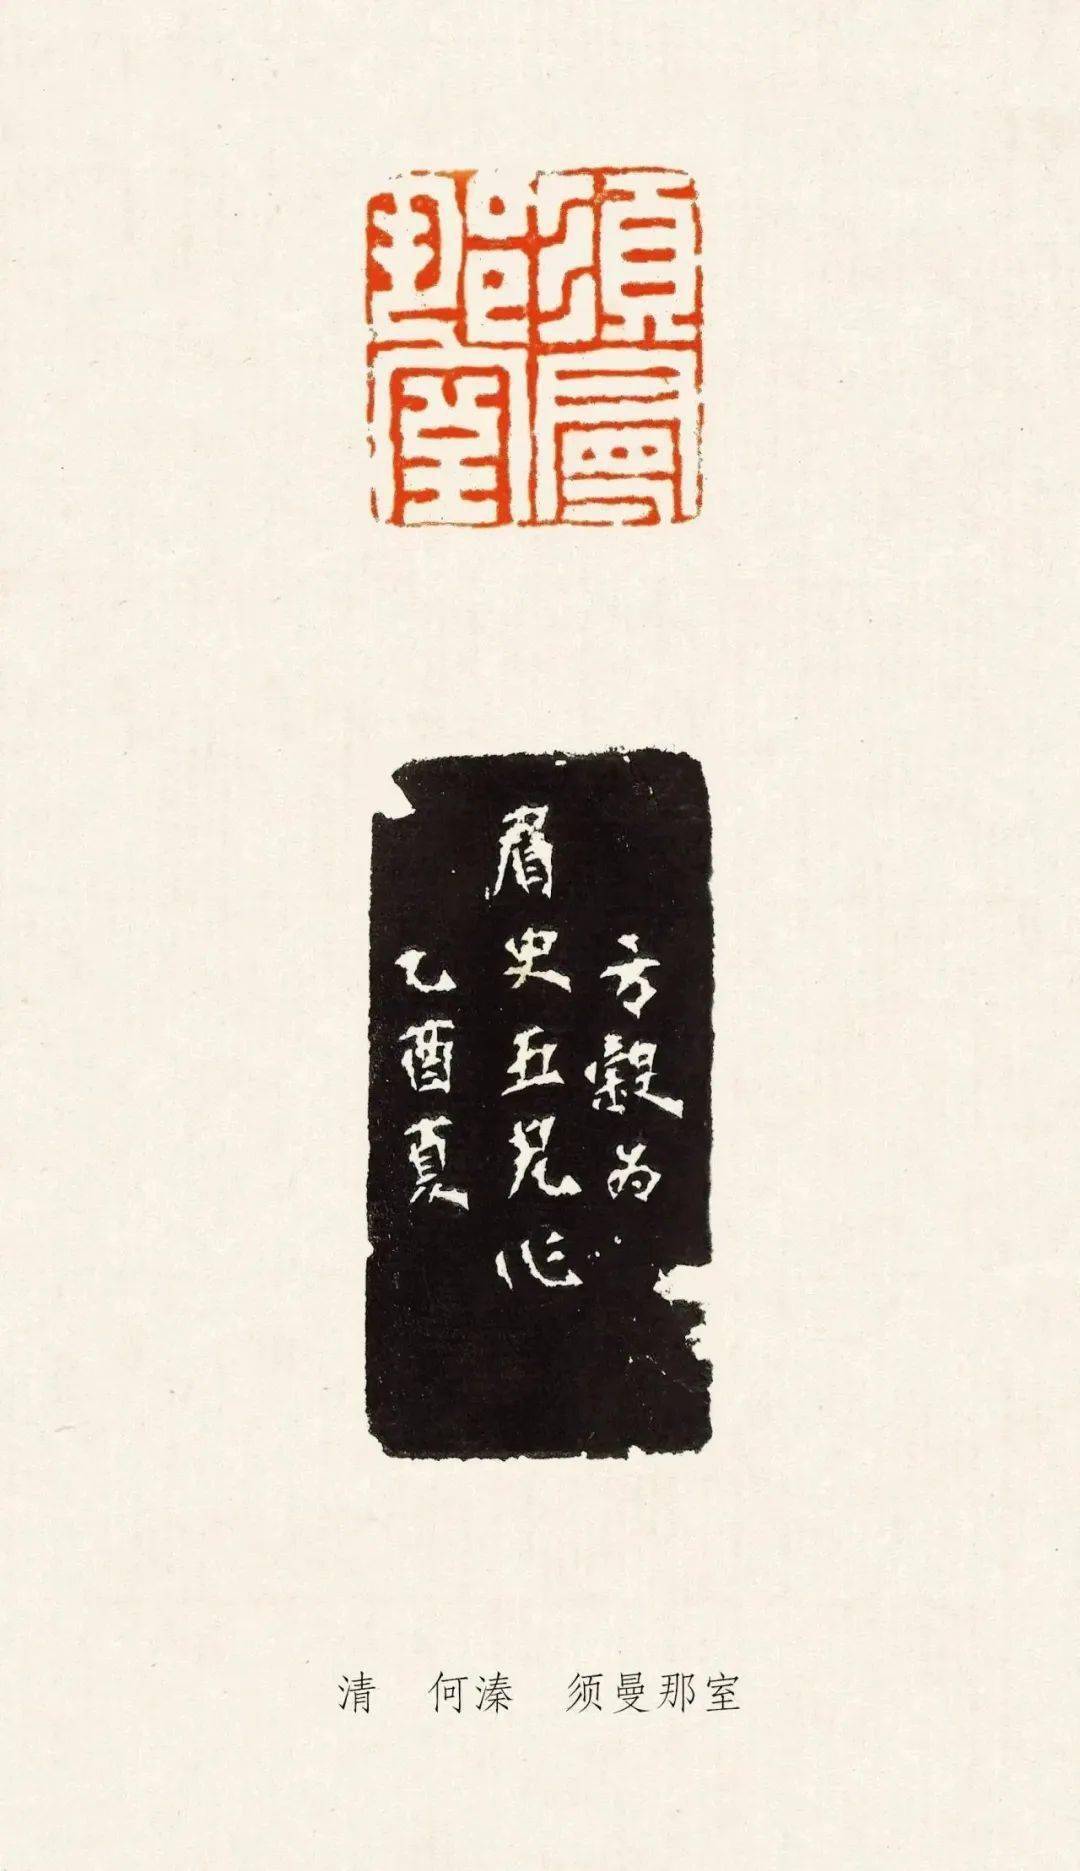 須曼
那室
方穀為
眉史五兄作
乙酉夏
清 何溱 须曼那室